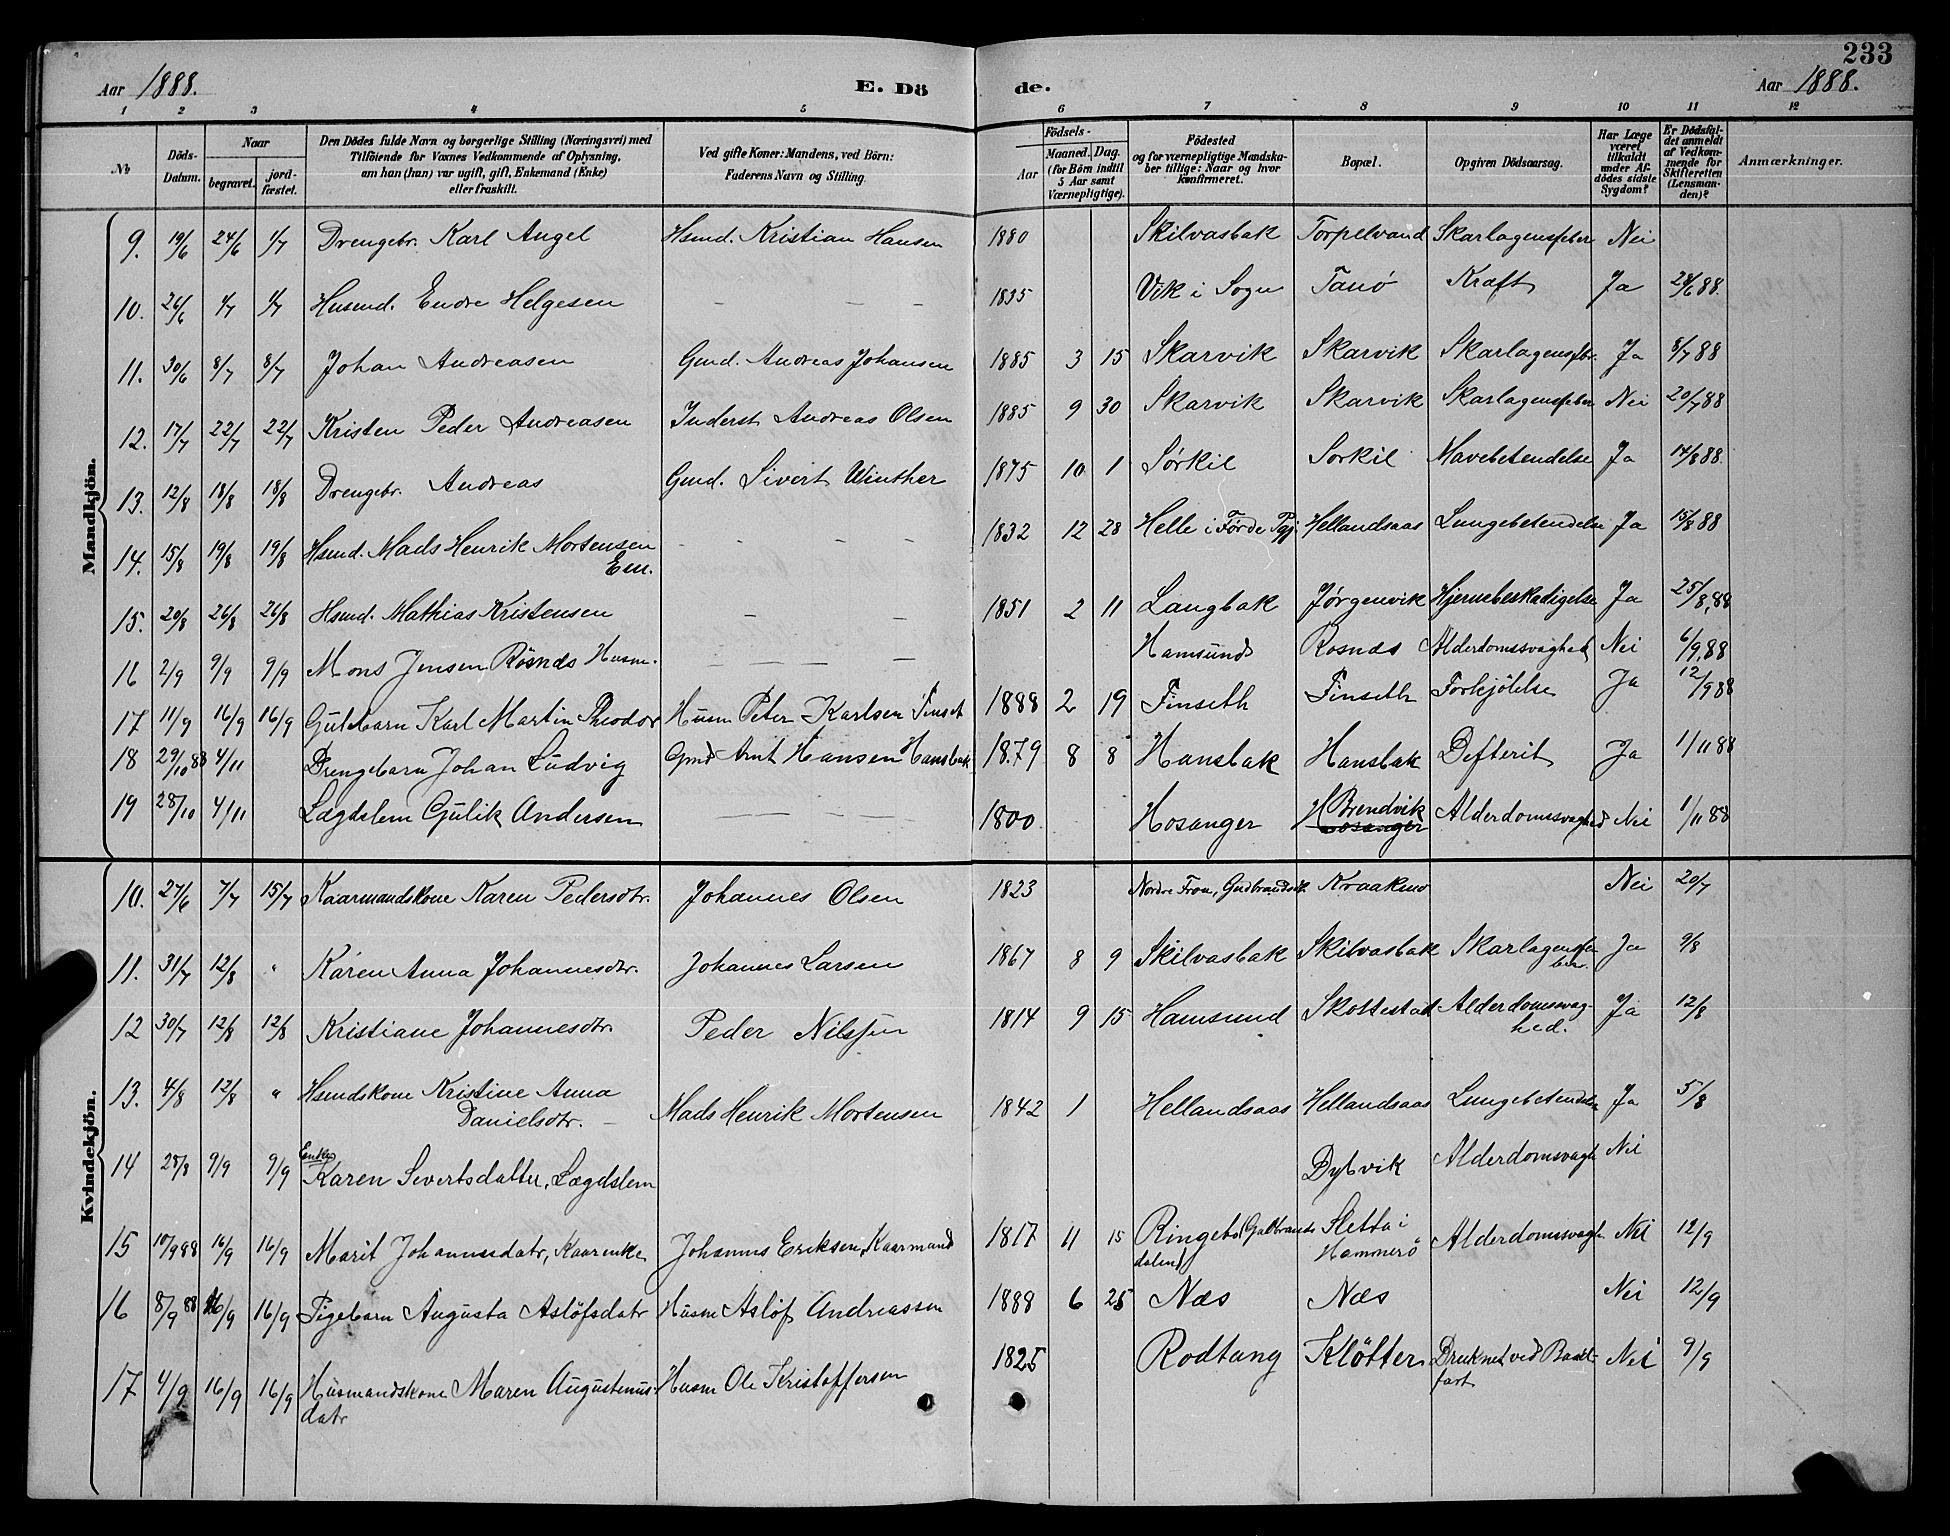 233
Aar 1888. E. Dö de. Aar 1888.
1 2 3 4 5 6 7 8 9 10 11 12
№ Döds-Datum. Naar begravet. jordfæstet. Den Dödes fulde Navn og borgerlige Stilling (Næringsvei) med Tilföiende for Voxnes Vedkommende af Oplysning, om han (hun) var ugift, gift, Enkemand (Enke) eller fraskilt. Ved gifte Koner: Mandens, ved Börn: Faderens Navn og Stilling. Födsels- Aar Maaned. Dag. (for Börn indtil 5 Aar samt Værnepligtige). Födested og for værnepligtige Mandskaber tillige: Naar og hvor konfirmeret. Bopæl. Opgiven Dödsaarsag. Har Læge været tilkaldt under Afdödes sidste Sygdom? Er Dödsfaldet anmeldt af Vedkommende for Skifteretten (Lensmanden)? Anmærkninger.
Mandkjön.
9. 19/6 24/6 1/7 Drengebr. Karl Angel Hsmd. Kristian Hansen 1880 Skilvasbak Torpelvand Skarlagensfeber Nei
10. 26/6 1/7 1/7 Husmd. Endre Helgesen – – – 1835 Vik i Sogn Tanö Kræft Ja 28/6 88.
11. 30/6 8/7 8/7 Johan Andreasen Gmd. Andreas Johansen 1885 3 15 Skarvik Skarvik Skarlagensfbr. Ja 8/7 88
12. 17/7 22/7 22/7 Kristen Peder Andreasen Inderst Andreas Olsen 1885 9 30 Skarvik Skarvik Skarlagensfeber Nei 20/7 88
13. 12/8 18/8 18/8 Drengebr. Andreas Gmd. Sivert Winther 1875 10 1 Sørkil Sorkil Mavebetendelse Ja 14/8 88.
14. 15/8 19/8 19/8 Hsmd. Mads Henrik Mortensen Em. - - - - 1832 12 28 Helle i Førde Pgj. Hellandsaas Lungebetendelse Ja 15/8 88
15. 20/8 26/8 26/8 Hsmd. Mathias Kristensen – – – 1851 2 11 Langbak Jørgenvik Hjernebeskadigelse Ja 25/8,88
16 2/9 9/9 9/9 Mons Jensen Rösnæs Husm. – – – – Hamsund Rosnæs Alderdomssvaghed Nei 6/9,88
17 11/9 16/9 16/9 Gutebarn Karl Martin Theodor Husm Peter Karlsen Finset 1888 2 19 Finseth Finseth Forkjölelse Ja 12/9 88
18 29/10 88 4/11 Drengebarn Johan Ludvig Gmd Arnt Hansen Hansbak 1879 8 8 Hansbak Hansbak Defterit Ja 1/11 88
19 28/10 4/11 Lægdslem Gulik Andersen – – – – 1800 Hosanger Brendvik Hosanger Alderdomssvaghed Nei 1/11 88
Kvindekjön.
10. 27/6 7/7 15/7 Kaarmandskone Karen Pedersdtr. Johannes Olsen 1823 Nordre Fron, Gudbrandsd. Kraakmo Nei 20/7
11. 31/7 12/8 " Karen Anna Johannesdtr. Johannes Larsen 1867 8 9 Skilvasbak Skilvasbak Skarlagensfeber. Ja 9/8
12 30/7 12/8 12/8 Kristiane Johannesdtr. Peder Nilssen 1814 9 15 Hamsund Skottestad Alderdomssvaghed. Ja 12/8
13. 4/8 12/8 " Hsmdskone Kristine Anna Danielsdtr. – Mads Henrik Mortensen 1842 1 Hellandsaas Hellandsaas Lungebetendelse Ja 5/8
14 28/8 9/9 9/9 Enke Karen Sivertsdatter, Lægdslem Dybvik Alderdomssvagh Nei
15 10/9 88 16/9 16/9 Marit Johannesdatr, Kaarenke Johannes Eriksen, Kaarmand 1817 11 15 Ringebo (Gulbrandsdalen) Sletta i Hammerö Alderdomssvagh Nei 12/9
16 8/9 88 16/9 16/9 Pigebarn Augusta Aslöfsdatr Husm Aslöf Andreassen 1888 6 25 Næs Næs Nei 12/9
17 4/9 16/9 16/9 Husmandskone Maren Augustinusdatr Husm Ole Kristoffersen 1825 Rodtang Klötten Druknet ved Baadfart Nei 9/9